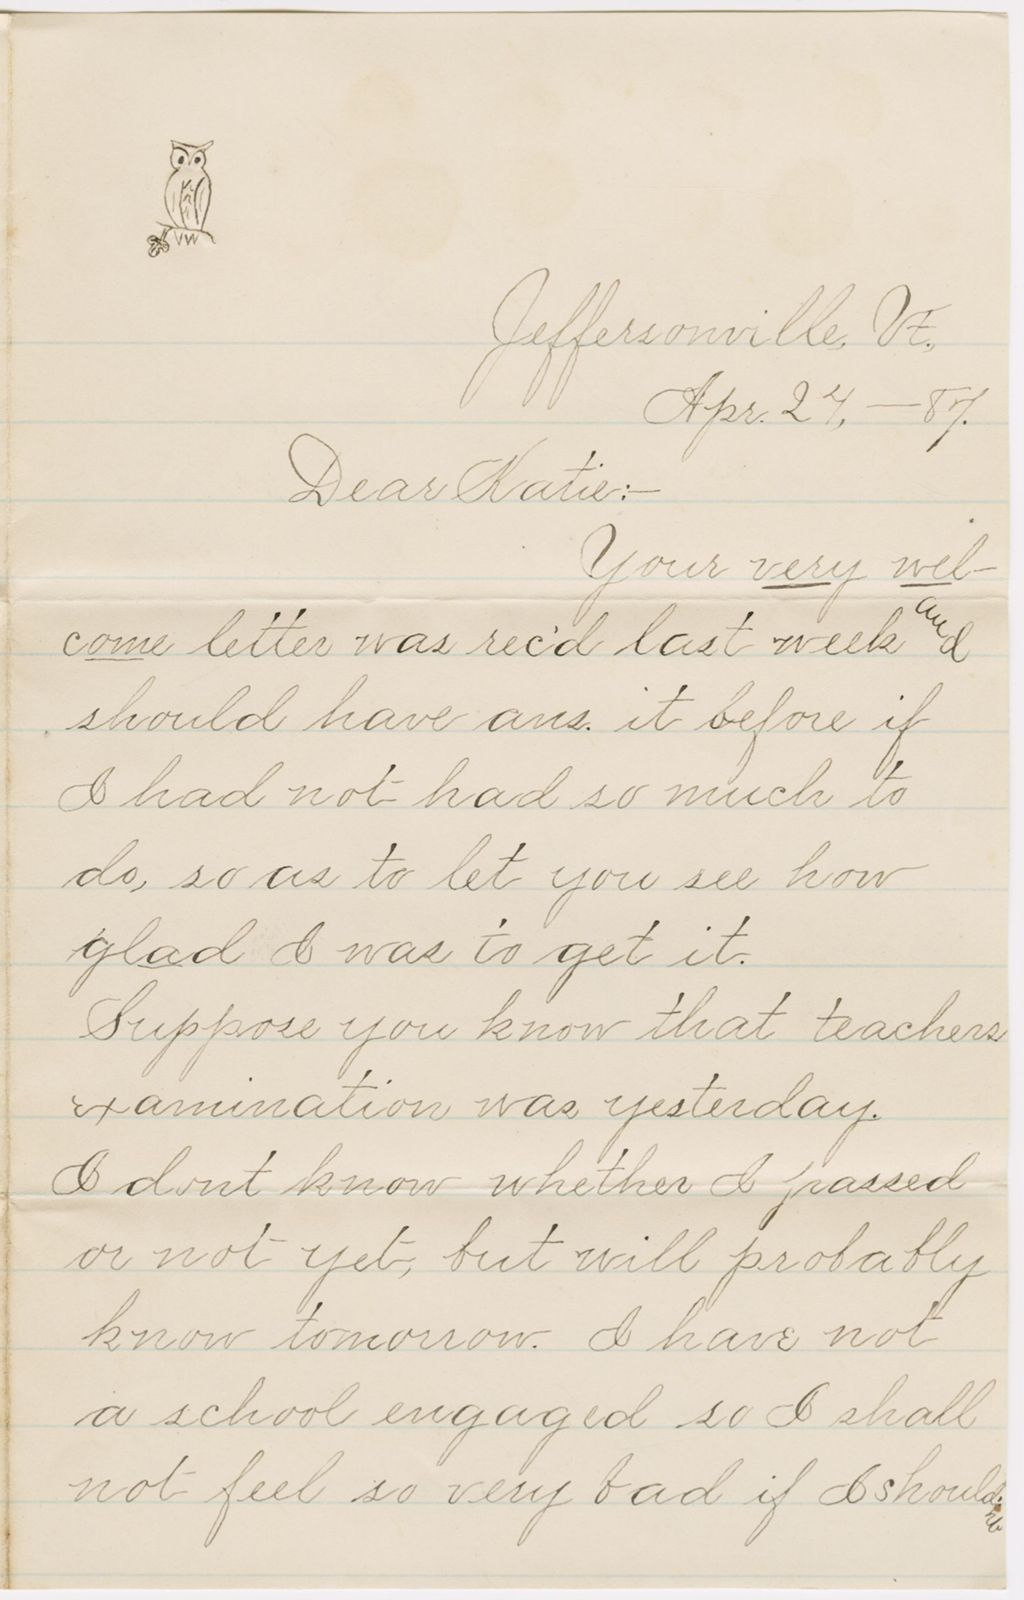 Jeffersonville, Vt.
Apr. 24, —87.
Dear Katie:—
Your very wel-
come letter was rec'd last week and I
should have ans. it before if
I had not had so much to
do, so as to let you see how
glad I was to get it.
Suppose you know that teachers
examination was yesterday.
I dont know whether I passed
or not yet, but will probably
know tomorrow. I have not
a school engaged so I shall
not feel so very bad if I should